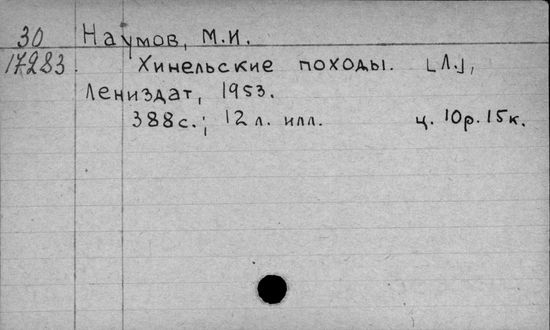 30 Наумов, М.И.
17283. Хинельские походы. [Л.],
Лениздат, 1953.
388с.; 12 л. илл. ц. 10р. 15к.